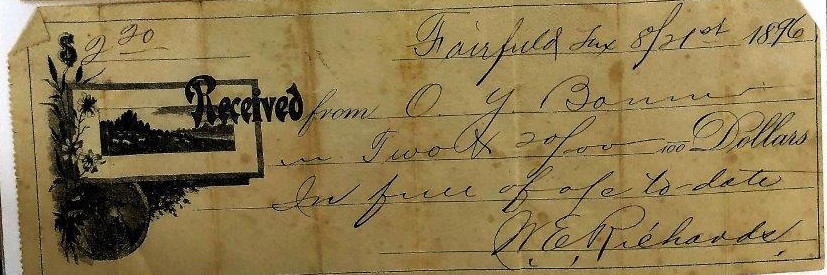 $2.20 Fairfield Tex 8/21st 1896
Received from O. Y. Bonner
Two & 20/00 100 Dollars
In full of a/c to date
W. E. Richards